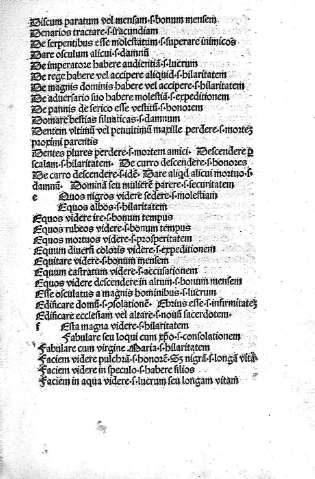 Discum paratum vel mensam·s·bonum mensem
Denarios tractare·s·iracundiam
De serpentibus esse molestatum·s·superare inimicos
Dare osculum alicui·s·damnū
De imperatore habere audientiā·s·lucrum
De rege habere vel accipere aliquid·s·hilaritatem
De magnis dominis habere vel accipere·s·hilaritatem
De aduersario suo habere molestiā·s·expeditionem
De pannis de serico esse vestitū·s·honorem
Domare bestias siluaticas·s·damnum
Dentem vltimū vel penultimū maxille perdere·s·mortē
proximi parentis
Dentes plures perdere·s·mortem amici· Descendere p
scalam·s·hilaritatem· De curro descendere·s·honores
De curro descendere·s·idē· Dare aliqd alicui mortuo·s·
damnū· Dominā seu mulierē parere·s·securitatem
e Equos nigros videre sedere·s·molestiam
Equos albos·s·hilaritatem
Equos videre ire·s·bonum tempus
Equos rubeos videre·s·bonum tempus
Equos mortuos videre·s·prosperitatem
Equum diuersi coloris videre·s·expeditionem
Equitare videre·s·bonum mensem
Equum castratum videre·s·accusationem
Equos videre descendere in altum·s·bonum mensem
Esse osculatus a magnis hominibus·s·lucrum
Edificare domū·s·ꝯsolationē· Ebrius esse·s·infirmitatē
Edificare ecclesiam vel altare·s·nouū sacerdotem·
f Festa magna videre·s·hilaritatem
Fabulare seu loqui cum xp̄o·s·consolationem
Fabulare cum virgine Maria·s·hilaritatem
Faciem videre pulchrā·s·honorē·Si nigrā·s·longā vitā
Faciem videre in speculo·s·habere filios
Faciem in aqua videre·s·lucrum seu longam vitam